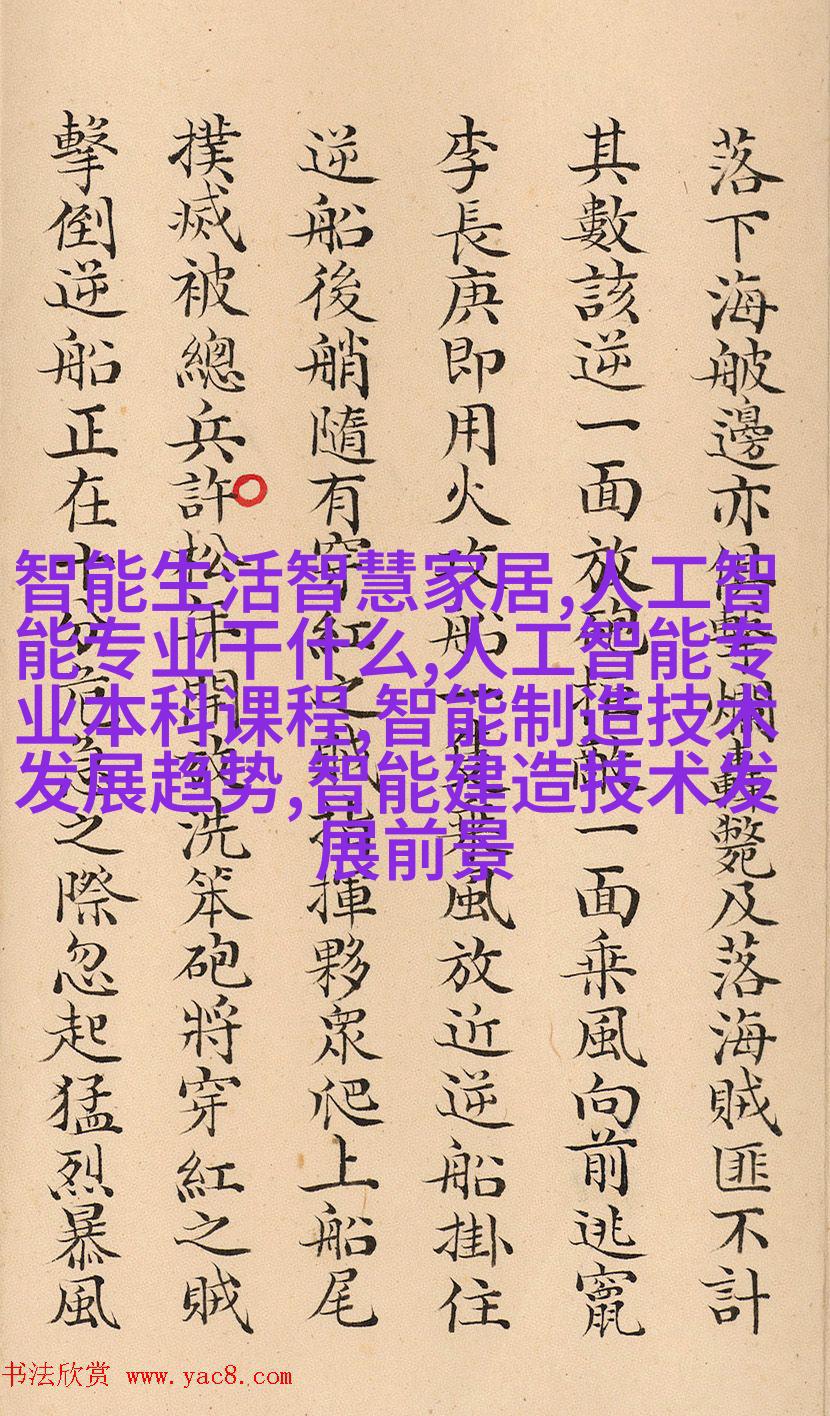 落下海邊亦俱擊爛轟斃及落海賊匪不計
其數該逆一面放砲拒敵一面乘風向前逃竄
李長庚即用火攻船一風放近逆船掛住
逆船後艄隨有穿紅之賊指揮夥眾爬上船尾
撲滅被總兵許松年開放洗笨砲將穿紅之賊
擊倒逆船正在十分危急之際忽起猛烈暴風
智能生活智慧家居,人工智
能专业干什么,人工智能专
业本科课程,智能制造技术
发展趋势,智能建造技术发
展前景
书法欣赏 www.yac8.com